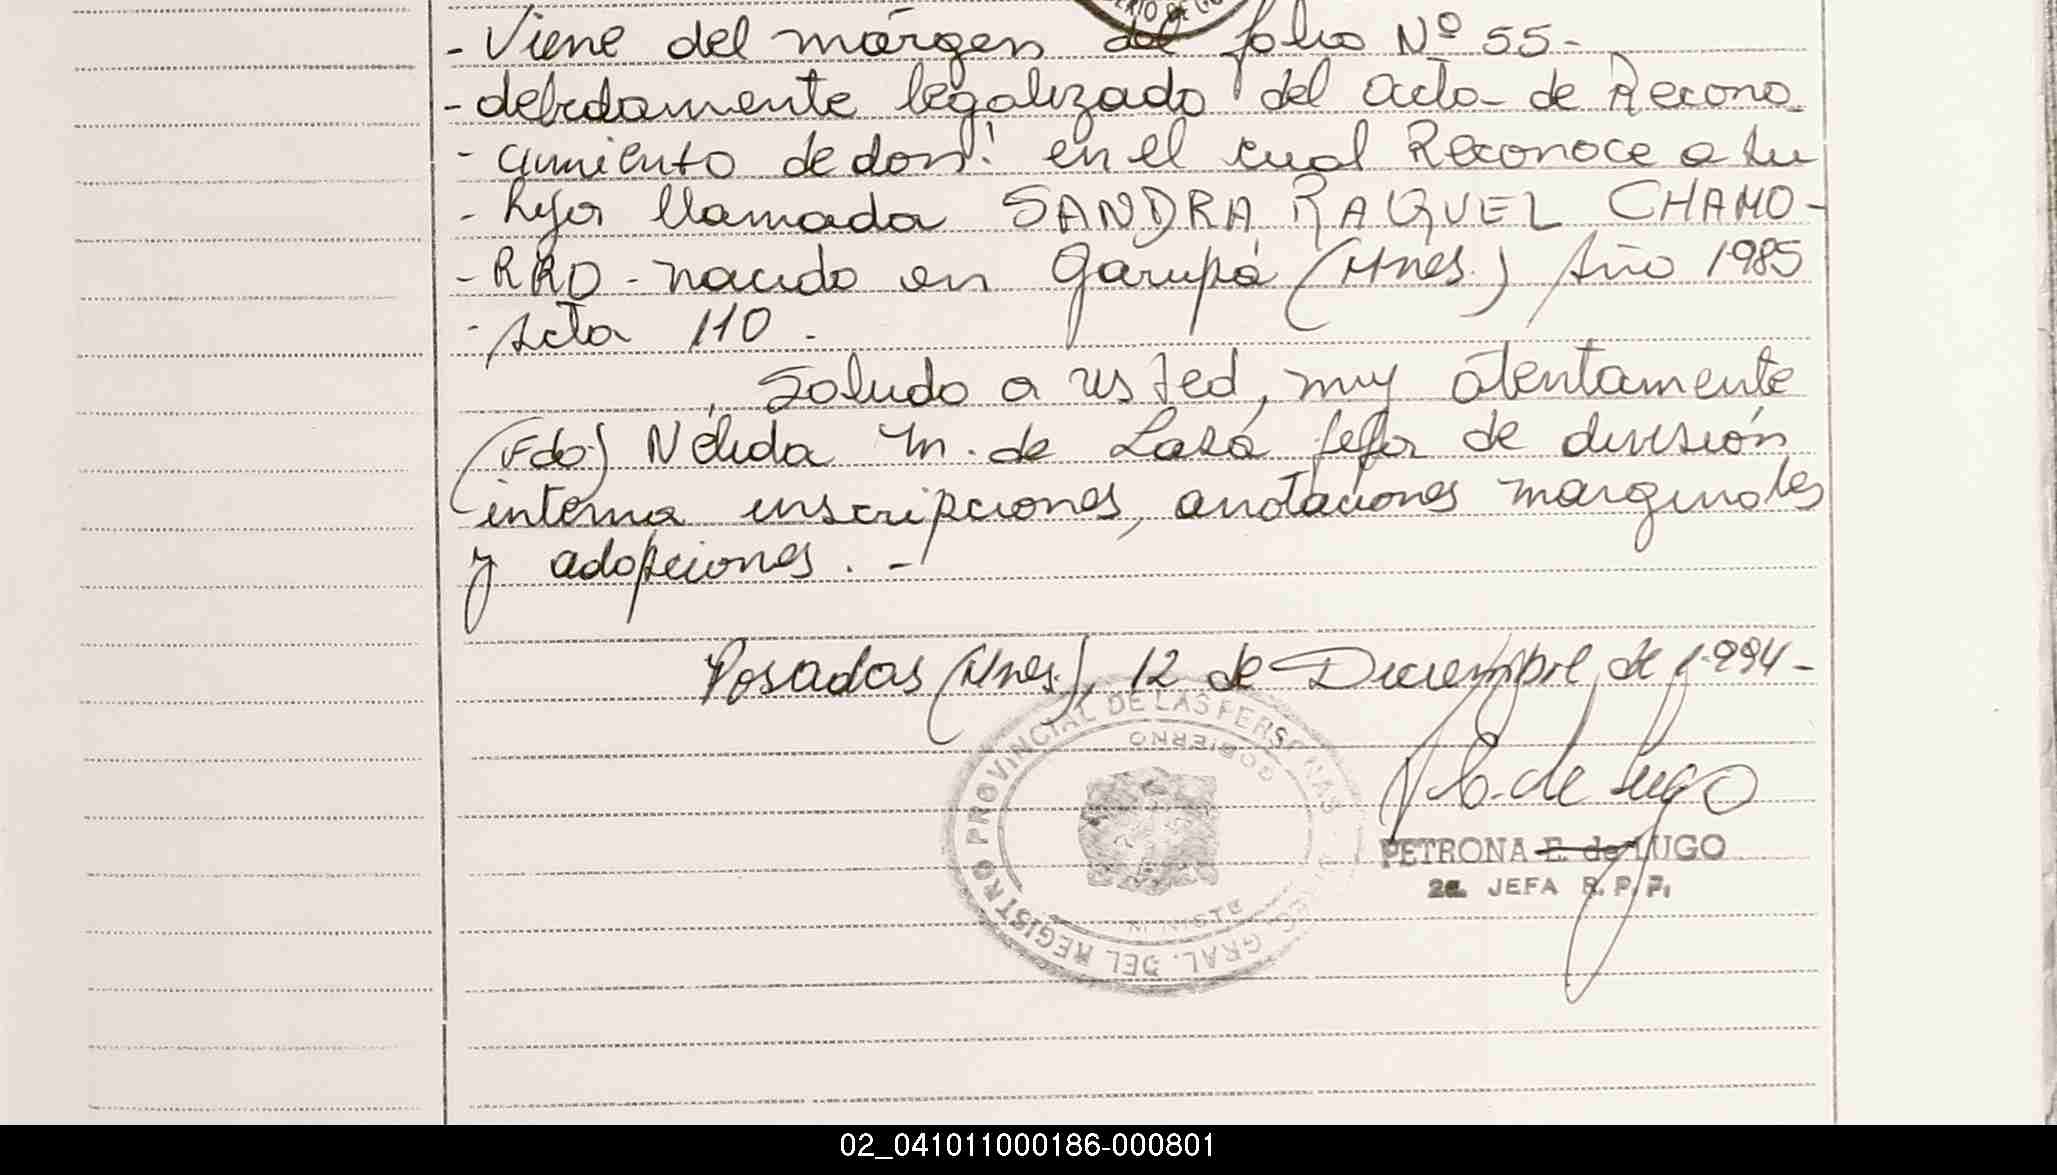 - Viene del márgen del folio Nº 55-
- debidamente legalizado del acta de Recono
- cimiento de don: en el cual Reconoce a su
- hija llamada SANDRA RAQUEL CHAMO-
- RRO - nacido en Garupá (Mnes.) Año 1985
- Acta 110 -
Saludo a usted, muy atentamente
(Fdo) Nélida M. de Jefa de división
interna inscripciones, anotaciones marginales
y adopciones. -
Posadas (Mnes.), 12 de Diciembre de 1994-
GRAL. DEL REGISTRO PROVINCIAL DE LAS PERSONAS
GOBIERNO
P. E. de Lugo
PETRONA E. de LUGO
2a. JEFA R. P. P.
02_041011000186-000801